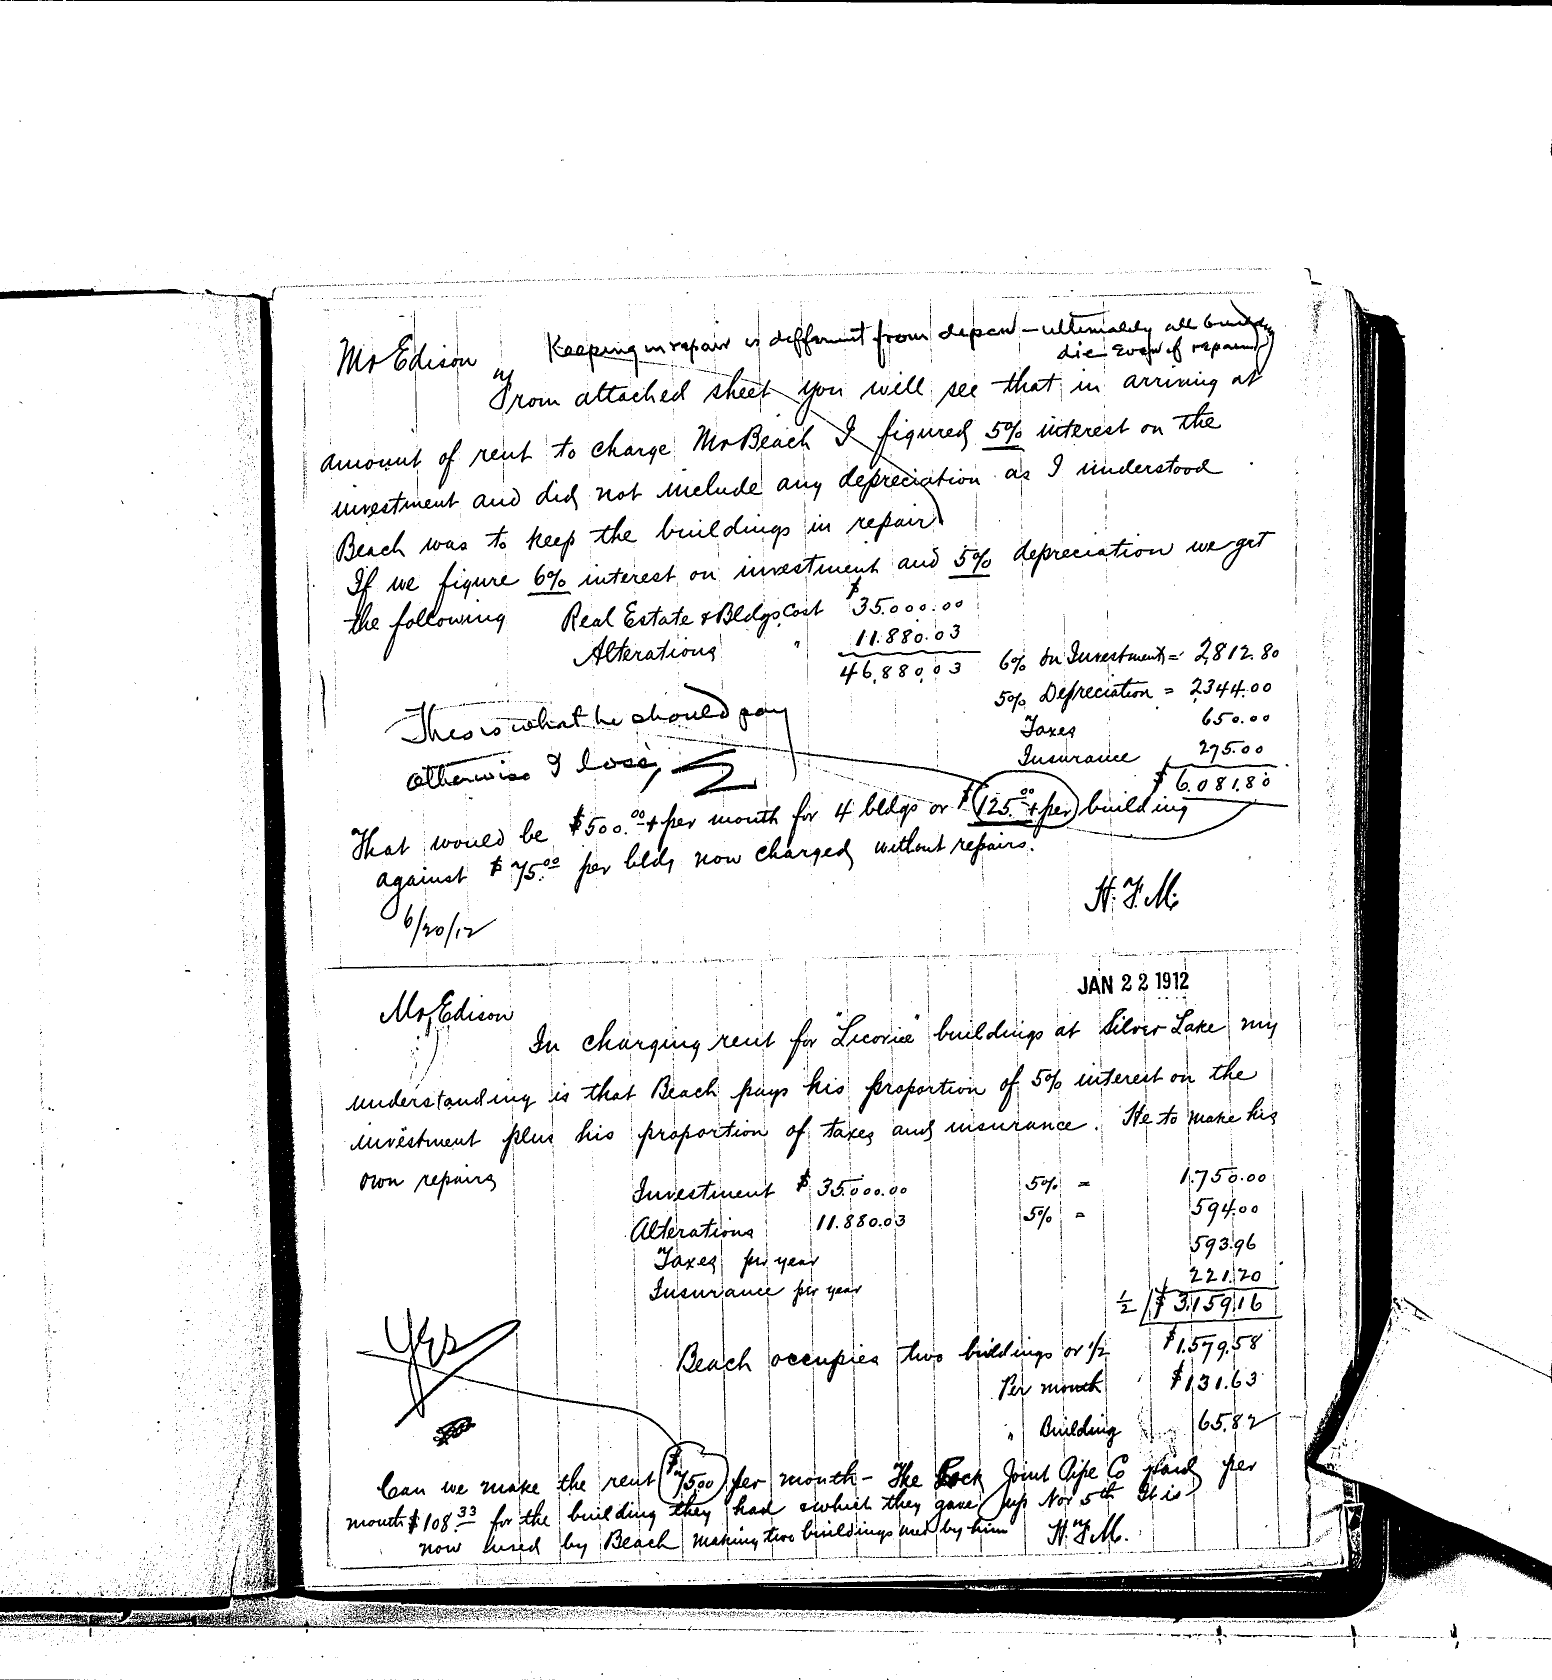 Keeping in repair is different from depcn - ultimately all buildings
die even if repaired
Mr Edison
From attached sheet you will see that in arriving at
amount of rent to charge Mr Beach I figured 5% interest on the
investment and did not include any depreciation as I understood
Beach was to keep the buildings in repair
If we figure 6% interest on investment and 5% depreciation we get
the following Real Estate & Bldgs Cost $35.000.00
Alterations " 11.880.03
46,880.03 6% on Investment = 2,812.80
5% Depreciation = 2344.00
Taxes 650.00
Insurance 275.00
$6.081.80
This is what he should pay
otherwise I lose,
That would be $500.00 + per month for 4 bldgs or $125.00 + per building
against $75.00 per bldg now charged without repairs.
H.F.M.
6/20/12
JAN 22 1912
Mr Edison
In charging rent for "Licorice" buildings at Silver Lake my
understanding is that Beach pays his proportion of 5% interest on the
investment plus his proportion of taxes and insurance. He to make his
own repairs
Investment $35.000.00 5% = 1.750.00
Alterations 11.880.03 5% = 594.00
Taxes per year 593.96
Insurance per year 221.20
1/2 $3.159.16
Yes
Beach occupies two buildings or 1/2 $1.579.58
Per month $131.63
" Building 65.82
Can we make the rent $75.00 per month - The Lock Joint Pipe Co paid per
month $108.33 for the building they had which they gave up Nov 5th It is
now used by Beach making two buildings used by him H.F.M.